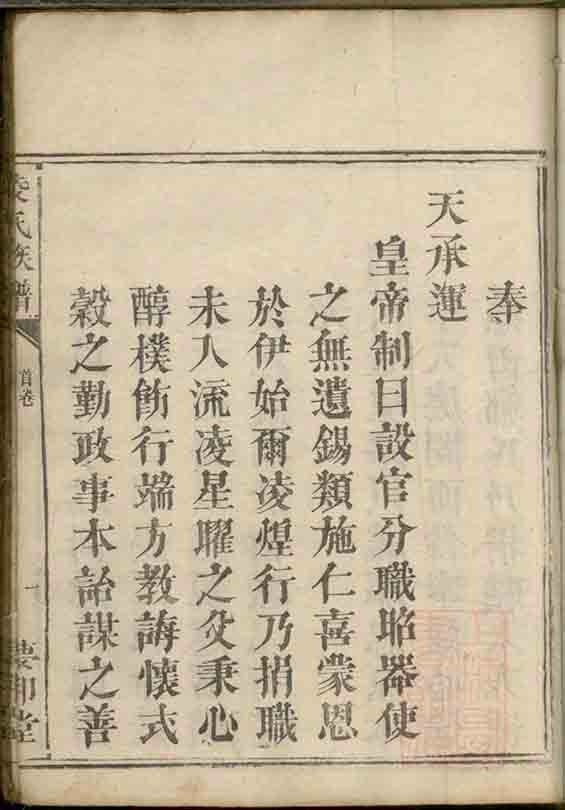 奉
天承運
皇帝制曰設官分職昭器使
之無遺錫類施仁喜蒙恩
於伊始爾凌煌行乃捐職
未入流凌星曜之父秉心
醇樸飭行端方教誨懷式
穀之勤政事本詒謀之善
凌氏族譜
首卷
一